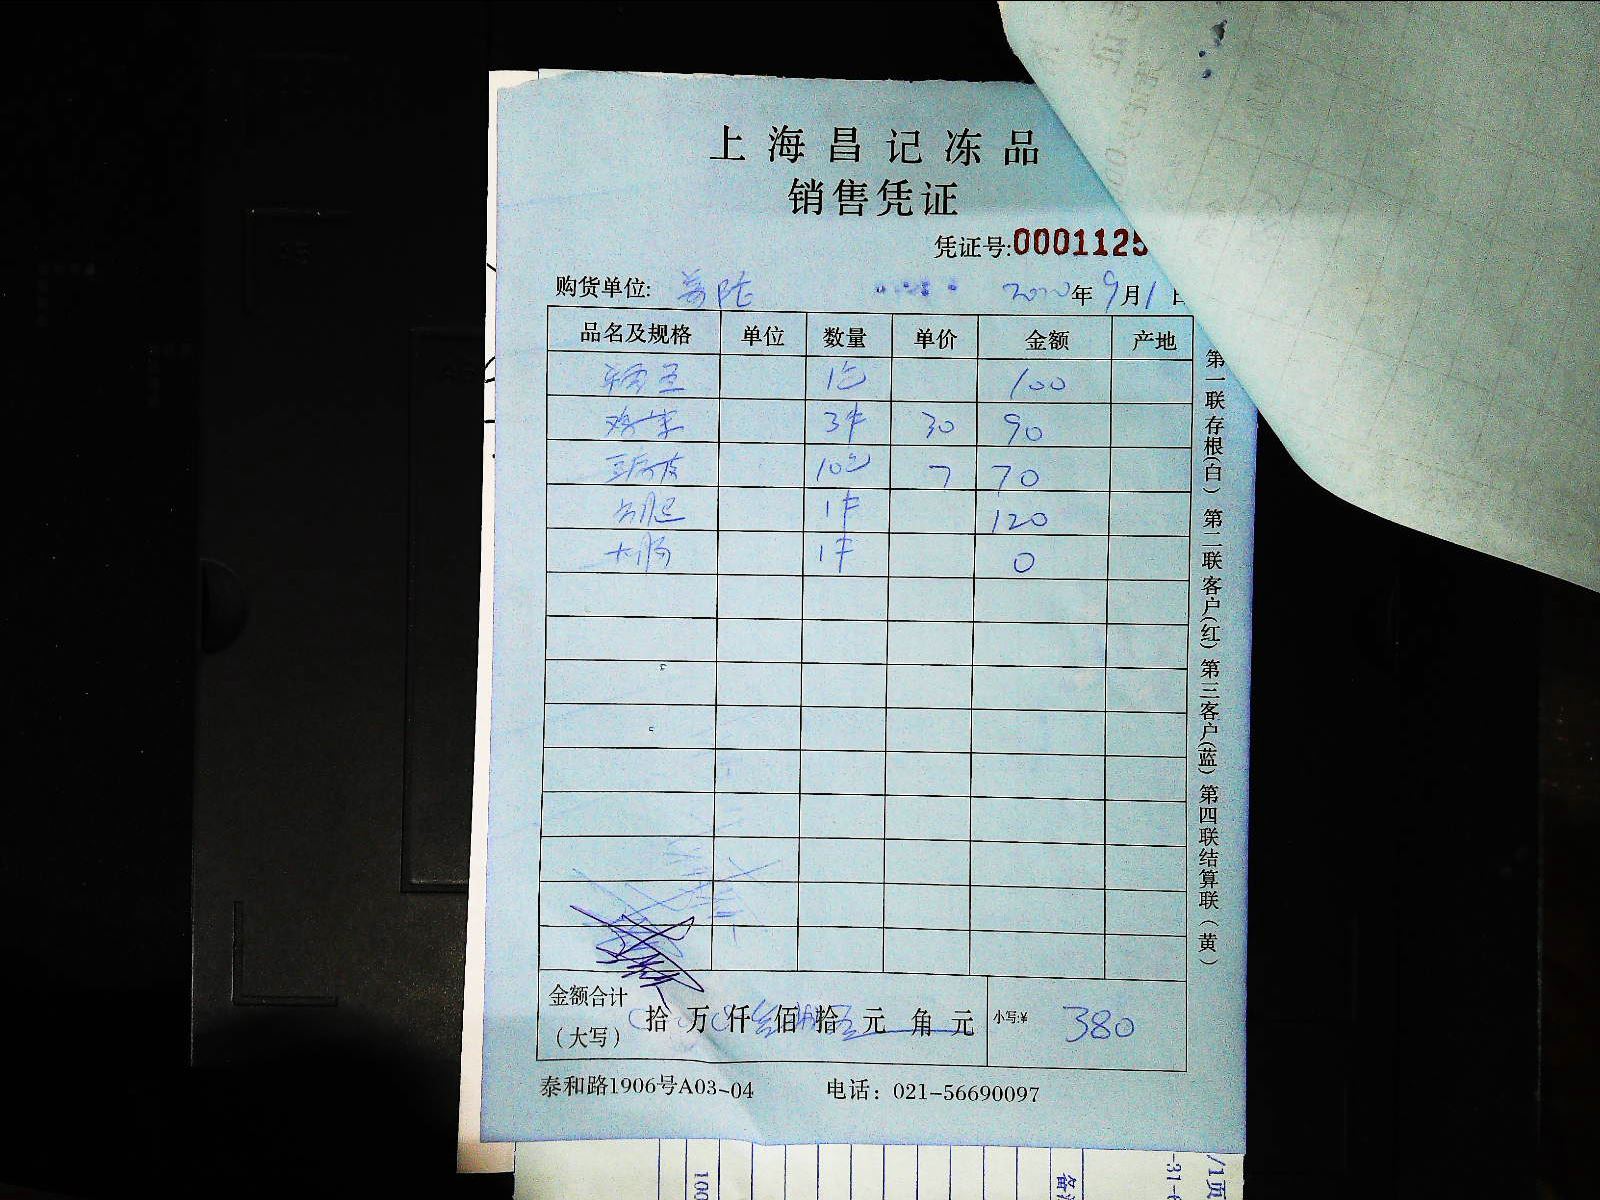 上海昌记冻品
销售凭证
凭证号:0001125
购货单位: 2020年9月1日
品名及规格 单位 数量 单价 金额 产地
1包 100
3件 30 90
10包 7 70
1件 120
大肠 1件 0
金额合计
(大写) 拾 万 仟 佰 拾 元 角 元 小写:¥ 380
泰和路1906号A03-04 电话: 021-56690097
第一联存根(白) 第二联客户(红) 第三客户(蓝) 第四联结算联(黄)
100
/1页